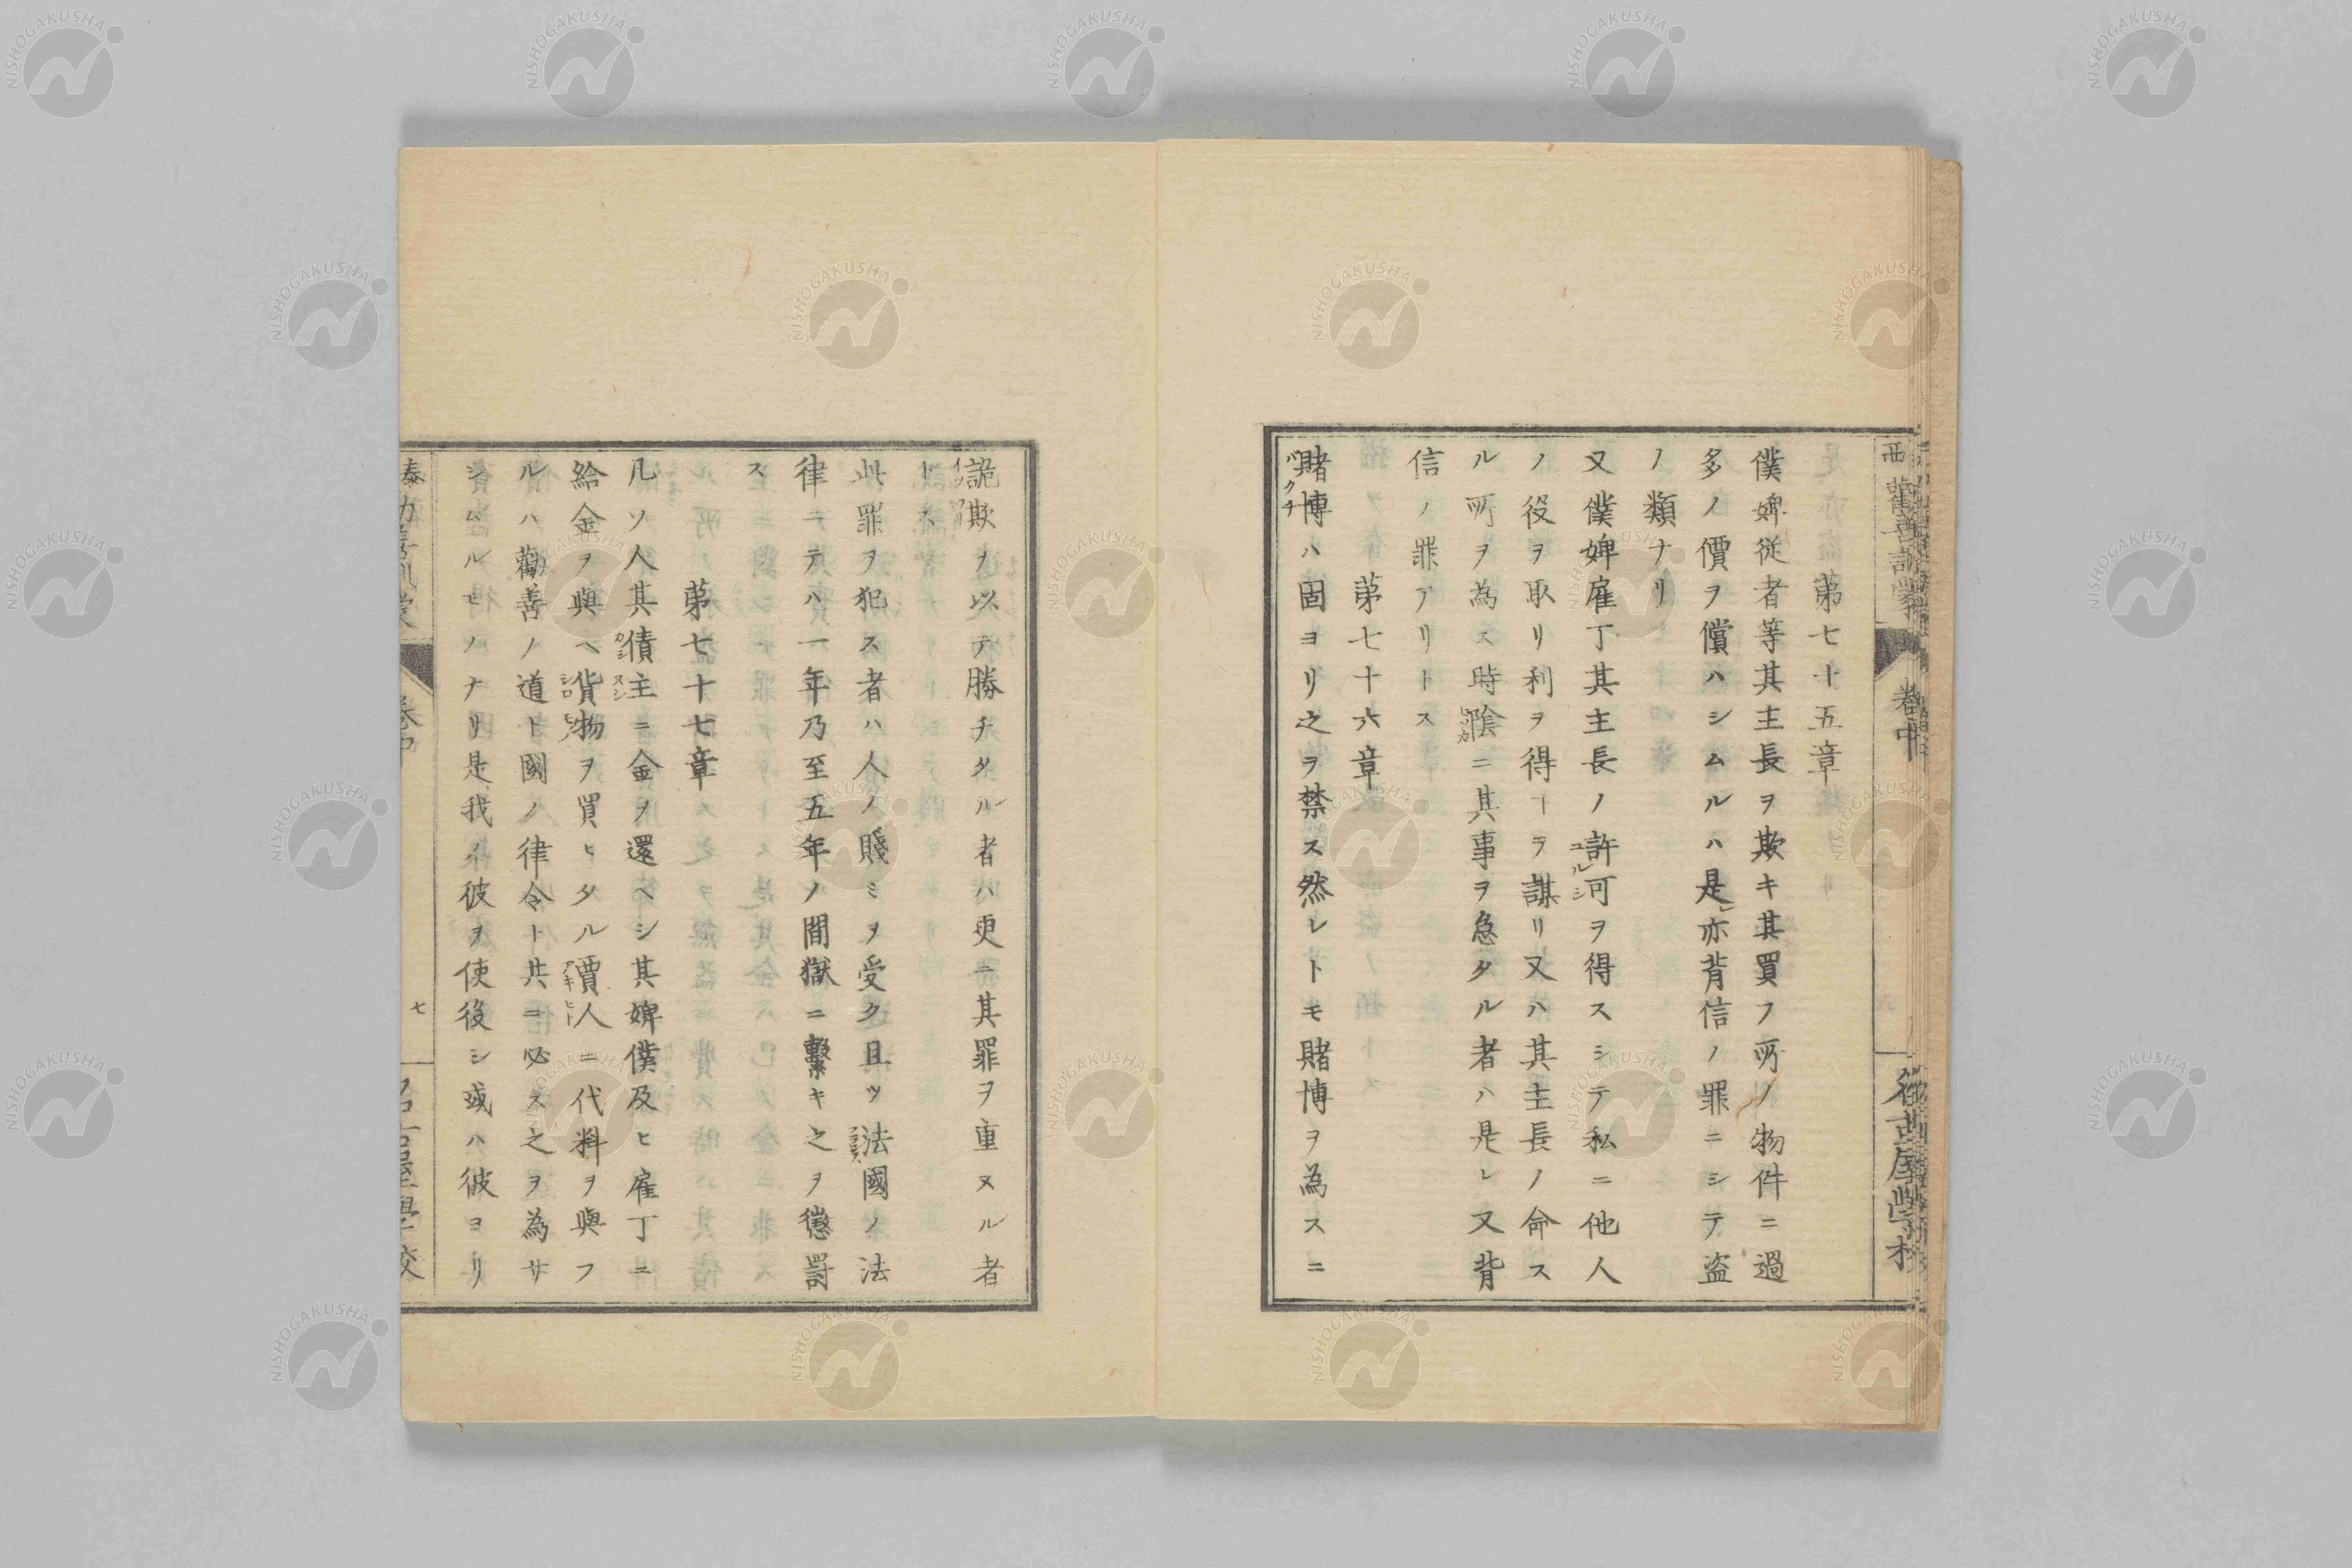 第七十五章
僕婢従者等其主長ヲ欺キ其買フ所ノ物件ニ過
多ノ價ヲ償ハシムルハ是亦背信ノ罪ニシテ盗
ノ類ナリ
又僕婢雇丁其主長ノ許可ヲ得スシテ私ニ他人
ノ役ヲ取リ利ヲ得ヿヲ謀リ又ハ其主長ノ命ス
ル所ヲ為ス時陰ニ其事ヲ怠タル者ハ是レ又背
信ノ罪アリトス
第七十六章
賭博ハ固ヨリ之ヲ禁ス然レトモ賭博ヲ為スニ
詭欺ヲ以テ勝チタル者ハ更ニ其罪ヲ重ヌル者
トス
此罪ヲ犯ス者ハ人ノ賤ミヲ受ク且ツ法國ノ法
律ニテハ一年乃至五年ノ間獄ニ繋キ之ヲ懲罰
ス
第七十七章
凡ソ人其債主ニ金ヲ還ヘシ其婢僕及ヒ雇丁ニ
給金ヲ與ヘ貨物ヲ買ヒタル賈人ニ代料ヲ與フ
ルハ勸善ノ道ト國ノ律令ト共ニ必ス之ヲ為サ
シムルモノナリ是我ノ彼ヲ使役シ或ハ彼ヨリ
卷中
七
NISHOGAKUSHA